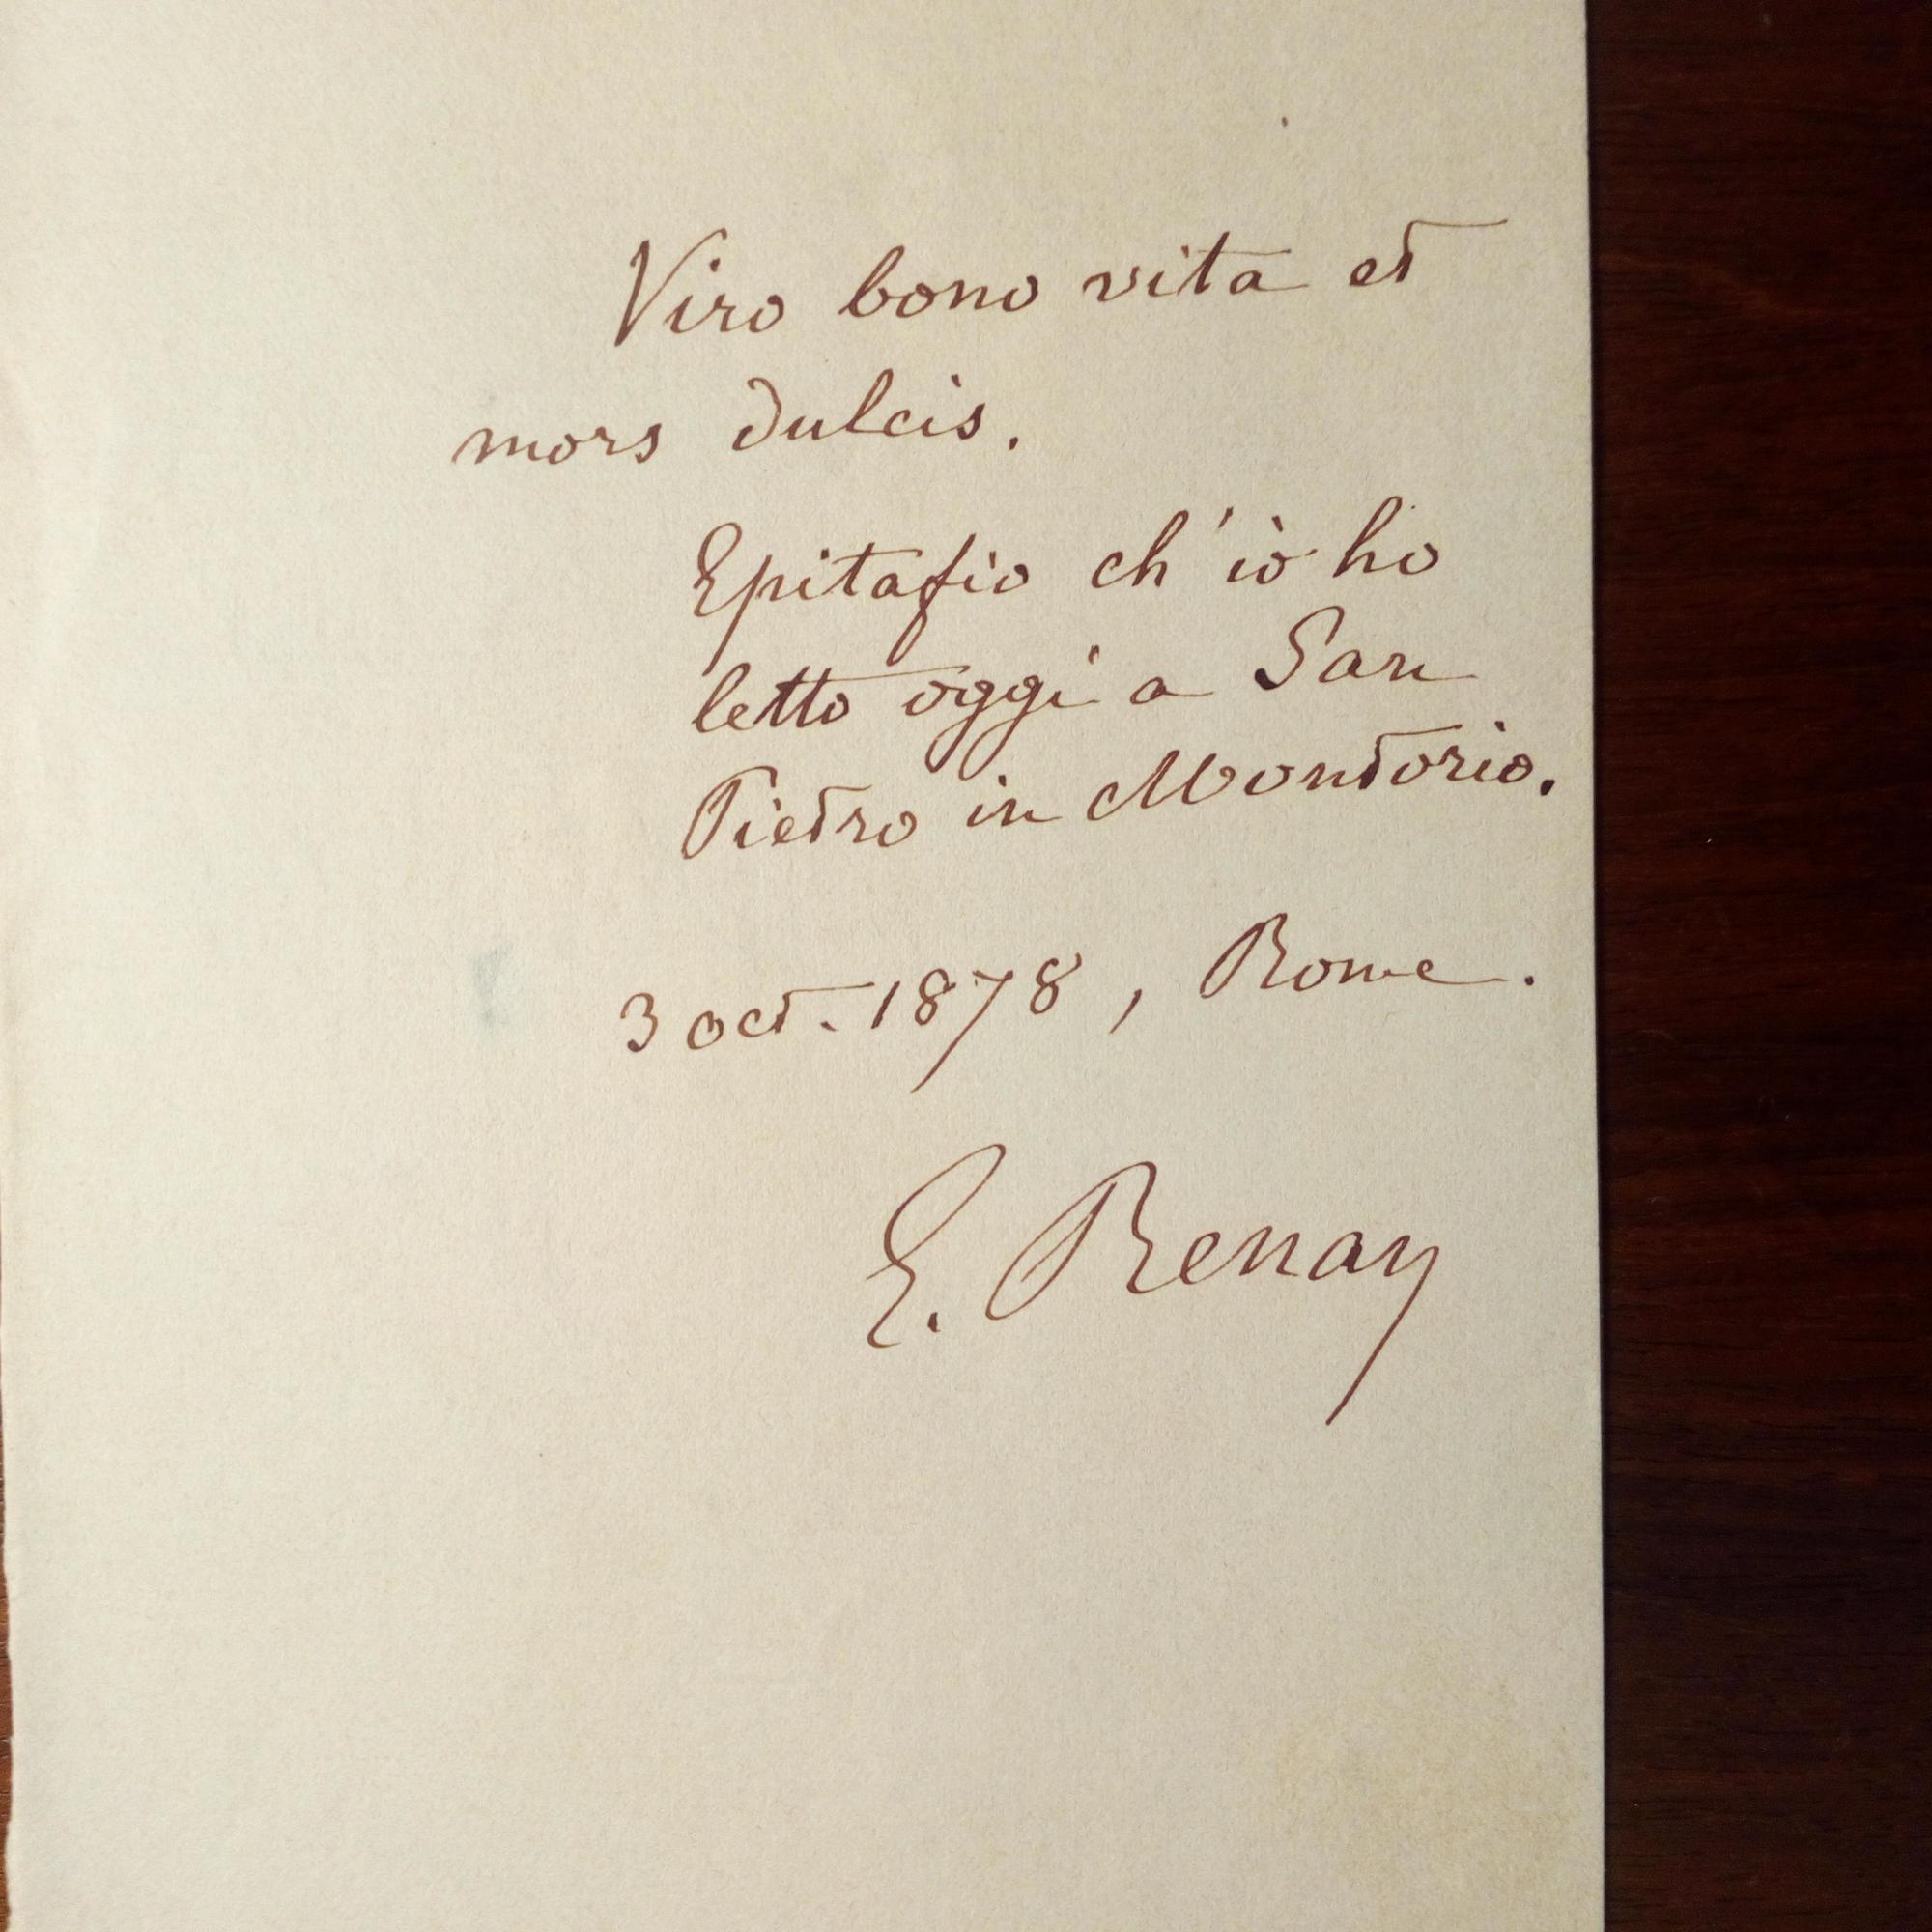 Viro bono vita et
mors dulcis.
Epitafio ch'io ho
letto oggi a San
Pietro in Montorio.
3 oct. 1878, Rome.
E. Renan